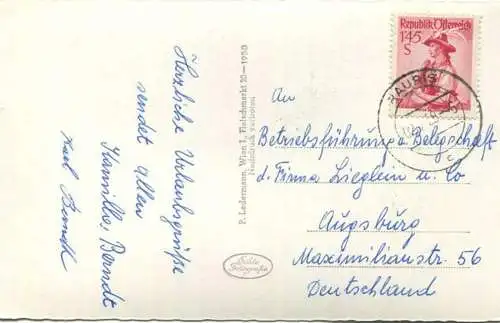 Herzliche Urlaubsgrüße
sendet allen
Familie Berndt
Karl Berndt
P. Ledermann, Wien I., Fleischmarkt 20 - 1950
Nachdruck verboten
Echte
Fotografie
Republik Österreich
1.45
S
RAURIS
An
Betriebsführung u. Belegschaft
d. Firma Zieglein u. Co
Augsburg
Maximilianstr. 56
Deutschland